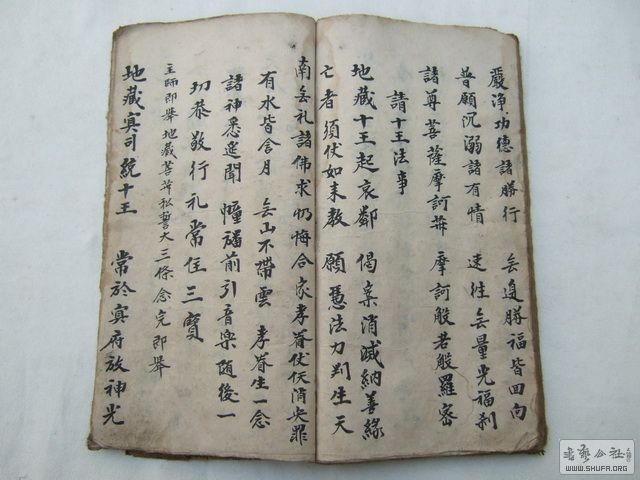 嚴淨功德諸勝行 无邊勝福皆回向
普願沉溺諸有情 速往无量光福刹
諸尊菩薩摩訶薩 摩訶般若般羅密
請十王法事
地藏十王起哀鄰 偈棄消滅納善緣
亡者須伏如來教 願憑法力刋生天
南无礼諸佛求忉悔合家孝眷仗伏消災罪
有水皆含月 无山不帶雲 孝眷生一念
諸神悉遥聞 幢旛前引音楽随後一
切恭敬行礼常住三寶
主師即舉地藏菩薩私誓大三條念完即舉
地藏㝠司統十王 常於㝠府放神光
書藝公社
WWW.SHUFA.ORG